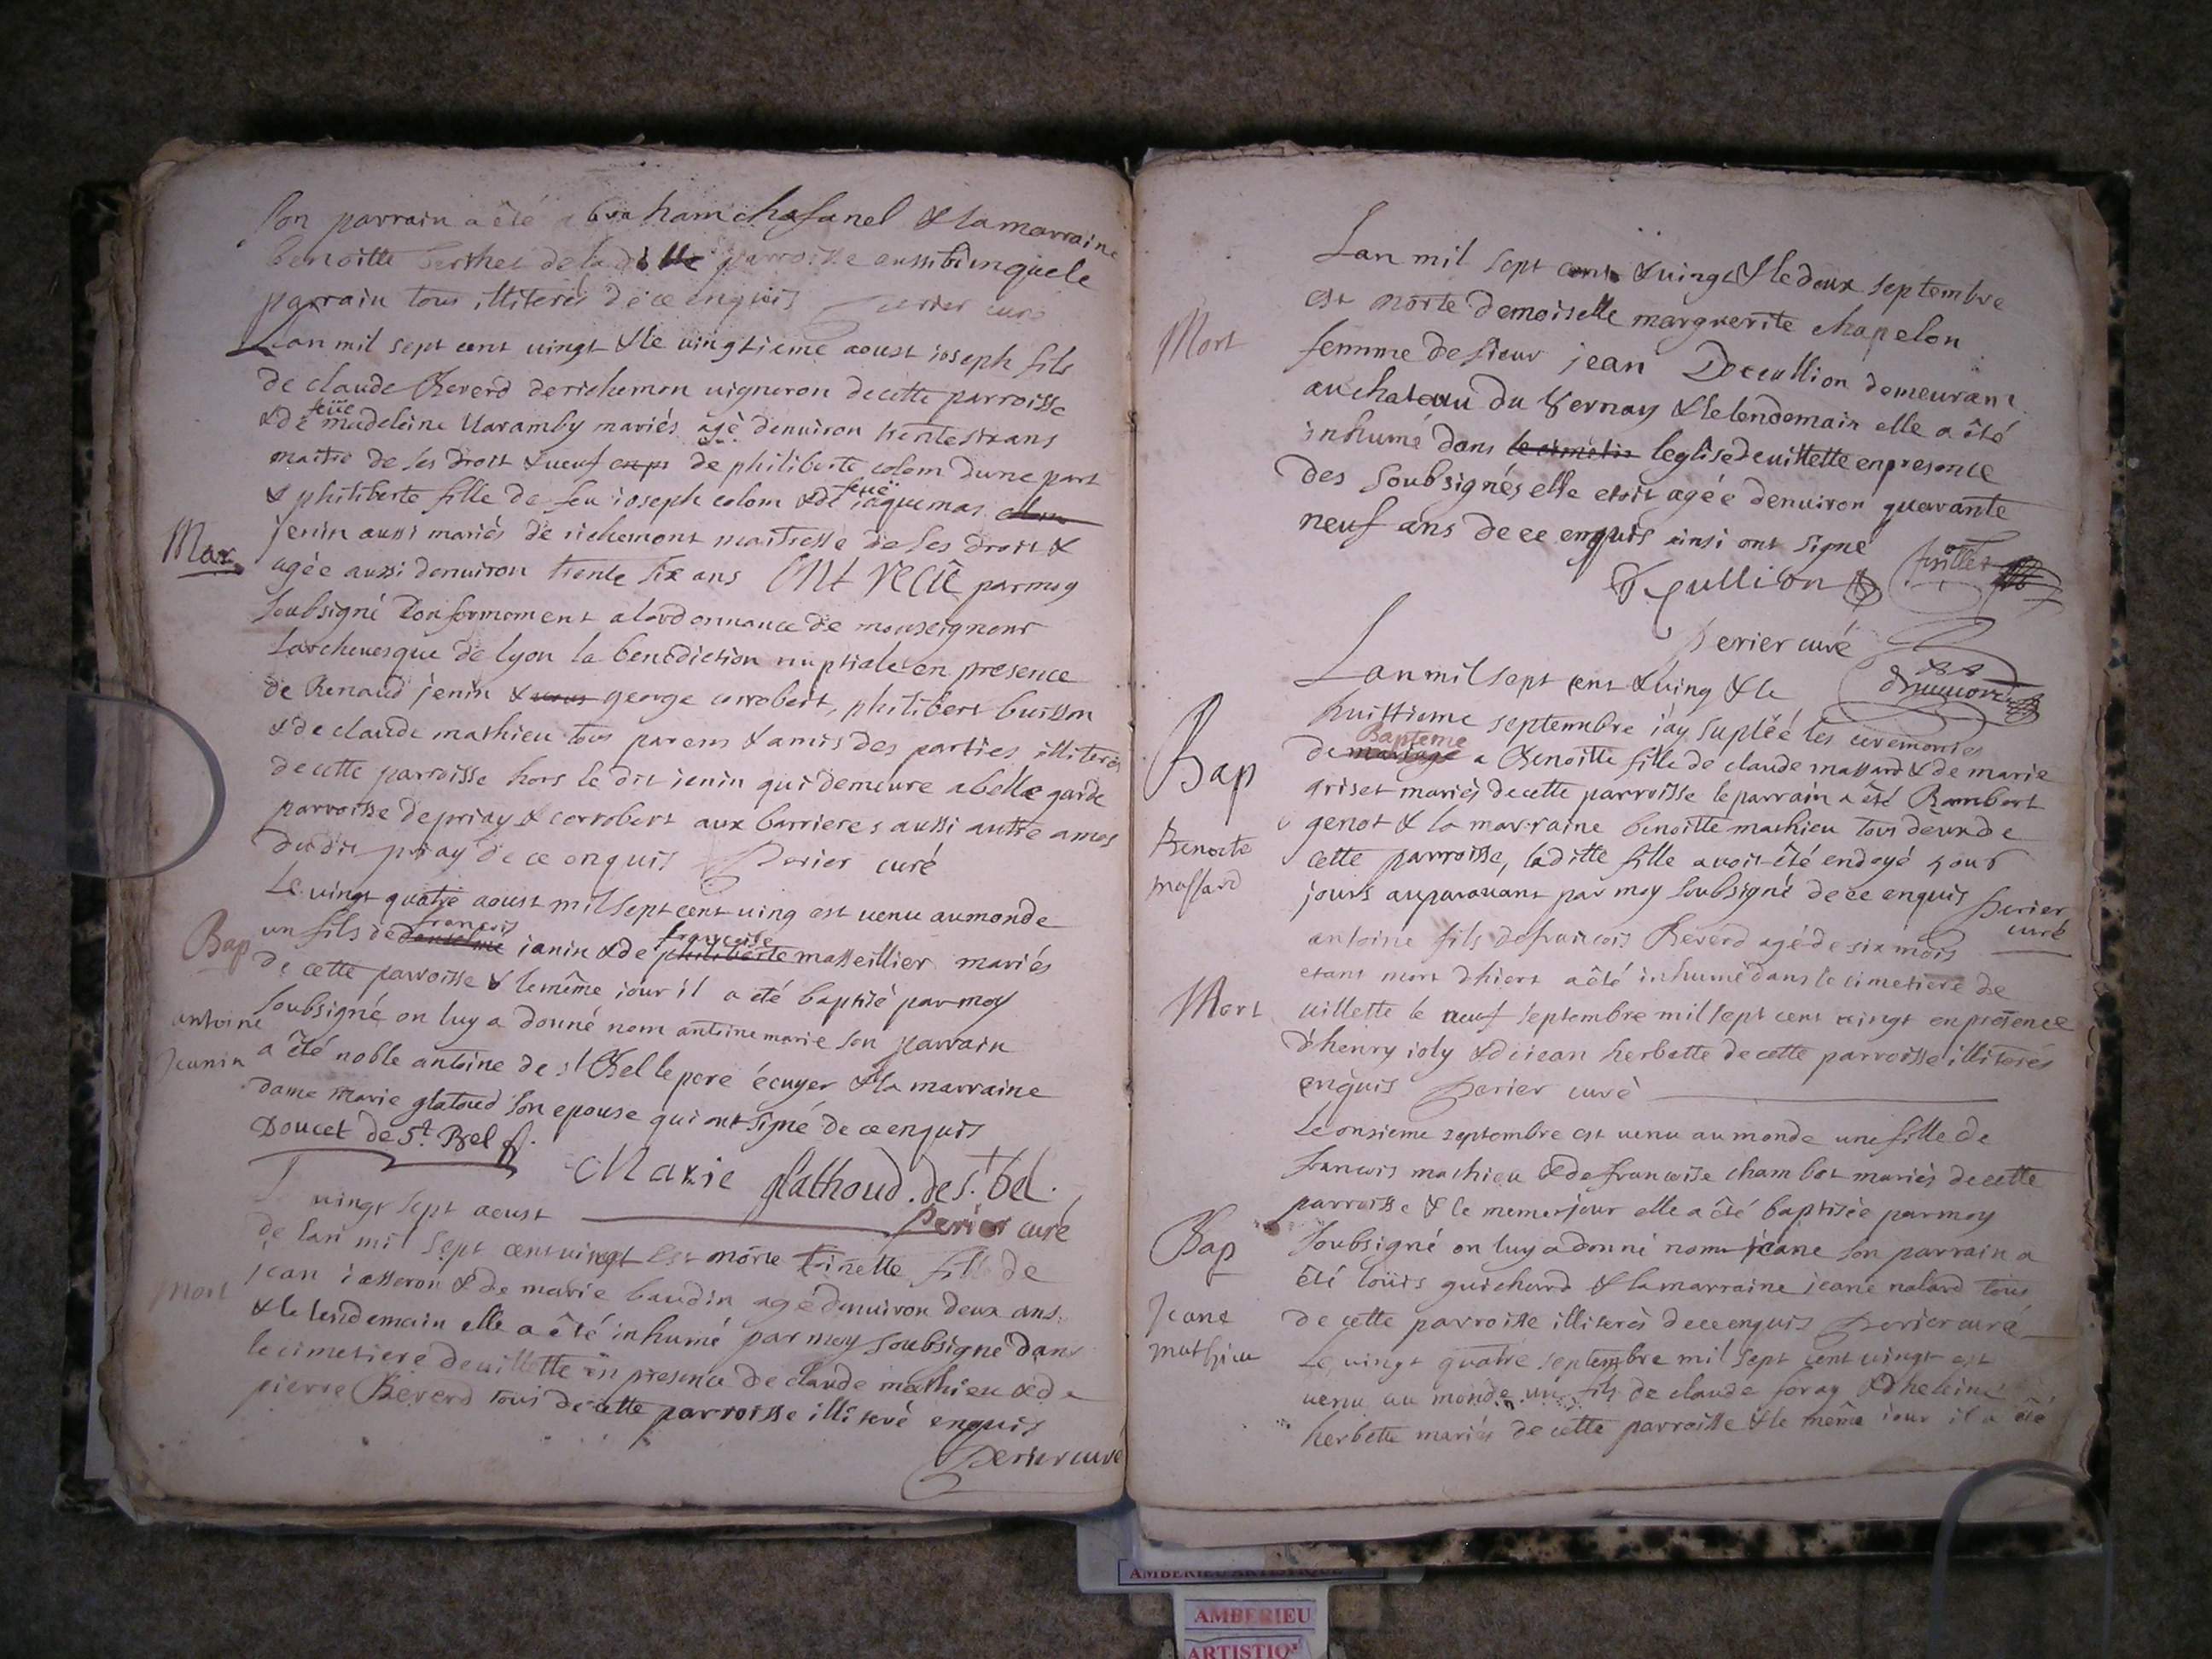 son parrain a été abraham chasanel & la marraine
benoitte berthet de la ditte parroisse aussi bien que le
parrain tous illiterés de ce enquis perier curé
Lan mil sept cent uingt & le uingtieme aoust ioseph fils
de claude Reverd de richemon uigneron de cette parroisse
feüe
& de madeleine Uaramby mariés agé denuiron trente six ans
maitre de ses droit & ueuf en ps de philiberte colom dune part
feuë
& philiberte fille de feu ioseph colom & de iaquemas
Mar
jenin aussi mariés de richemont maitresse de ses droit &
agée aussi denuiron trente six ans ONt reCû par moy
soubsigné Conformement a lordonnance de monseigneur
larcheuesque de lyon la benediction nuptiale en presence
de Renaud jenin & george corrobert, philibert buisson
& de claude mathieu tous parens & amis des parties illiterés
de cette parroisse hors le dit ienin qui demeure a belle garde
parroisse de priay & corrobert aux barrieres aussi
du dit priay de ce enquis Perier curé
Le uingt quatre aoust mil sept cent uing est uenu au monde
francois francoise
Bap
un fils de danselme ianin & de philiberte masseillier mariés
de cette parroisse & le même iour il a eté baptisé par moy
soubsigné on luy a donné nom antoine marie son parrain
antoine
Jeanin
a êté noble antoine de st Bel le pere écuyer & la marraine
dame marie glatoud son epouse qui ont signé de ce enquis
Doucet de St. Bel
Marie glathoud. de s. bel.
uingt sept aoust Perier curé
de lan mil sept cent uingt est morte Finette fille de
Mort
jean iasseron & de marie baudin agé denuiron deux ans
& le lendemain elle a êté inhumé par moy soubsigné dans
le cimetiere de uillette en presence de claude mathieu & de
pierre Reverd tous de cette parroisse illiteré enquis
Perier curé
Lan mil sept cent & uingt & le deux septembre
Mort
est morte demoiselle marguerite chapelon
femme de sieur jean Decullion demeurant
au chateau du Vernay & le lendemain elle a êté
inhumé dans le cimetie leglise de uillette en presence
des soubsignés elle etoit agée denuiron quarante
neuf ans de ce enquis ainsi ont signé
Perier curé
Lan mil sept cent & uing & le
huittieme septembre iay supléé les ceremonies
Bapteme
Bap
Benoite
massard
de mariage a Benoitte fille de claude massard & de marie
griset mariés de cette parroisse le parrain a êté Rambert
genot & la marraine benoitte mathieu tous deux de
cette parroisse, laditte fille auoit êté endoyé
jours auparauant par moy soubsigné de ce enquis Perier
curé
antoine fils de francois Reverd agé de six mois
etant mort dhiert a êté inhumé dans le cimetiere de
Mort
uillette le neuf septembre mil sept cent uingt en presence
dhenry ioly & de iean herbette de cette parroisse illiterés
enquis Perier curé
Le onsieme septembre est uenu au monde une fille de
francois mathieu & de francoise chambot mariés de cette
parroisse & le meme jour elle a êté baptisée par moy
Bap
Jeane
mathieu
soubsigné on luy a donné nom jeane son parrain a
êté loüis guichard & la marraine jeane nalard tous
de cette parroisse illiterés de ce enquis Perier curé
Le uingt quatre septembre mil sept cent uingt est
uenu au monde un fils de claude foray & dheleine
herbette mariés de cette parroisse & le même iour il a êté
AMBERIEU ARTISTIQUE
AMBERIEU
ARTISTIQ